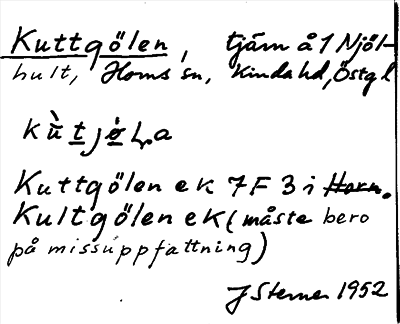 Kuttgölen, tjärn å 1 Njöl-
hult, Horns sn, Kinda hd, Östgl
Kuttgölen ek 7F 3 i Horn.
Kultgölen ek (måste bero
på missuppfattning)
J Sterner 1952